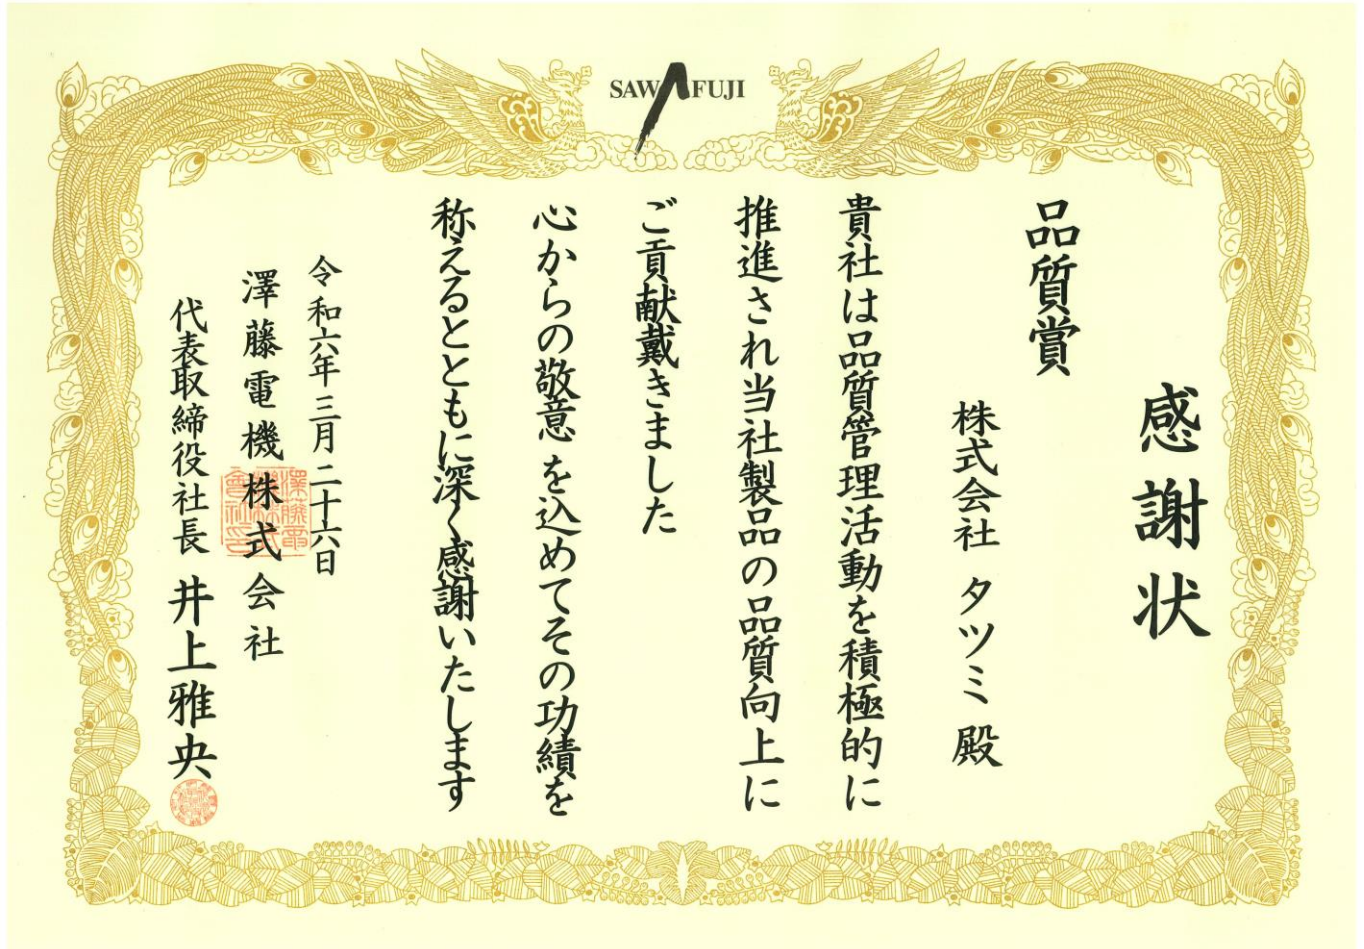 SAWAFUJI
感謝状
品質賞
株式会社 タツミ 殿
貴社は品質管理活動を積極的に
推進され当社製品の品質向上に
ご貢献戴きました
心からの敬意を込めてその功績を
称えるとともに深く感謝いたします
令和六年三月二十六日
澤藤電機株式会社
代表取締役社長 井上雅央